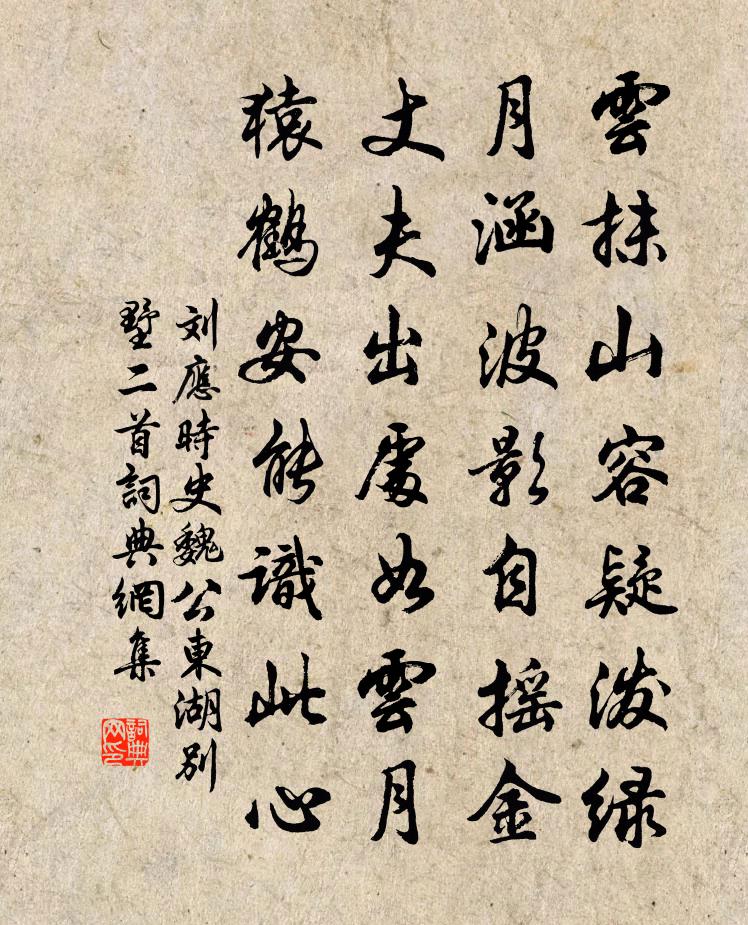 雲抹山容疑潑绿
月涵波影自摇金
丈夫出處如雲月
猿鶴安能識此心
刘應時史魏公東湖別
墅二首詞典網集
詞典
网印